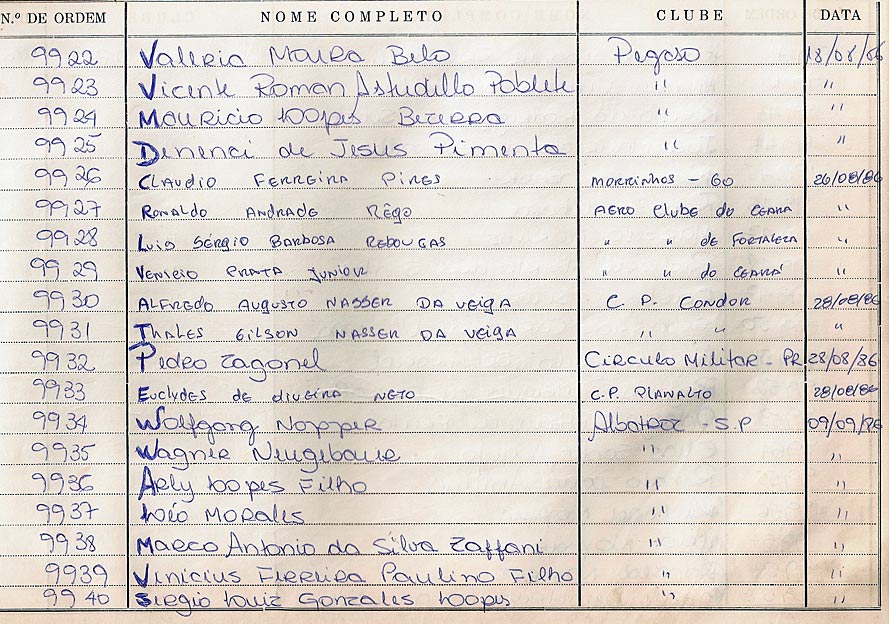 N.º DE ORDEM NOME COMPLETO CLUBE DATA
9922 Valeria Moura Belo Pegaso 18/08/86
9923 Vicente Roman Astudillo Poblete " "
9924 Mauricio Lopes Bezerra " "
9925 Denenci de Jesus Pimenta " "
9926 CLAUDIO FERREIRA PIRES MORRINHOS - GO 26/08/86
9927 RONALDO ANDRADE RÊGO AERO Clube do CEARÁ "
9928 Luis SÉRGIO BARBOSA REBOUGAS " " de FORTALEZA "
9929 PRATA JUNIOR " " do CEARÁ "
9930 ALFREDO AUGUSTO NASSER DA VEIGA C. P. CONDOR 28/08/86
9931 THALES GILSON NASSER DA VEIGA " " "
9932 Pedro Zagonel Circulo Militar - PR 28/08/86
9933 EUCLYDES DE OLIVEIRA NETO C.P. PLANALTO 28/08/86
9934 Wolfgang Nopper Albatroz - S.P 09/09/86
9935 Wagner Neugebauer " "
9936 Arly Lopes Filho " "
9937 Léo MORALES " "
9938 Marco Antonio da Silva Zaffani " "
9939 Vinicius Ferreira Paulino Filho " "
9940 Sergio Luiz Gonzales Lopes " "